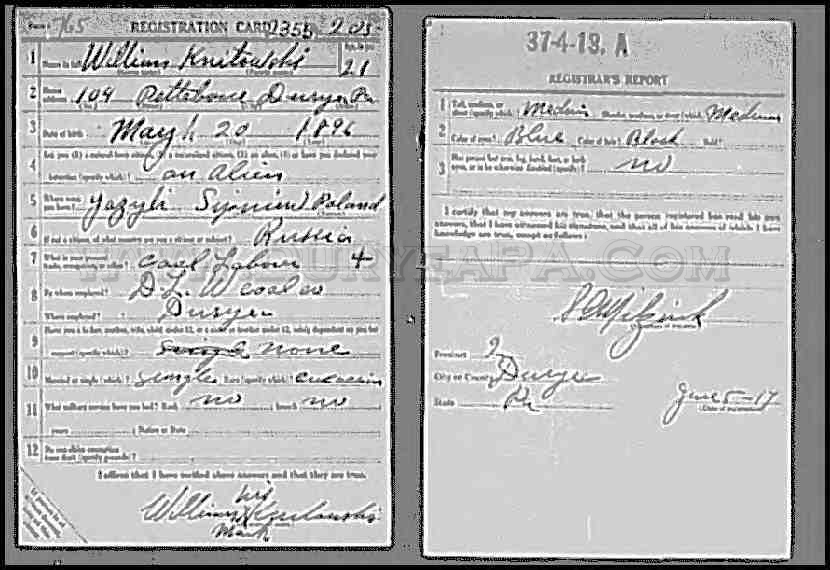 Form 1 765 REGISTRATION CARD 2355 203
1 Name in full William Knitowski Age, in yrs. 21
(Given name) (Family name)
2 Home address 109 Pettebone Duryea Pa
3 Date of birth May 20 1896
(Month) (Day) (Year)
4 Are you (1) a natural-born citizen, (2) a naturalized citizen, (3) an alien, (4) or have you declared your
intention (specify which)? an Alien
5 Where were you born? Poland
6 If not a citizen, of what country are you a citizen or subject? Russia
7 What is your present trade, occupation, or office? Coal Labour 4
8 By whom employed? D.L. W coal co
Where employed? Duryea
9 Have you a father, mother, wife, child under 12, or a sister or brother under 12, solely dependent on you for
support (specify which)? single none
10 Married or single (which)? Single Race (specify which)? Caucasian
11 What military service have you had? Rank no branch no
years Nation or State
12 Do you claim exemption from draft (specify grounds)?
I affirm that I have verified above answers and that they are true.
his
William X Knitowski
Mark
37-4-13. A
REGISTRAR'S REPORT
1 Tall, medium, or short (specify which)? Medium Slender, medium, or stout (which)? Medium
2 Color of eyes? Blue Color of hair? Black Bald?
3 Has person lost arm, leg, hand, foot, or both eyes, or is he otherwise disabled (specify)? no
I certify that my answers are true, that the person registered has read his own
answers, that I have witnessed his signature, and that all of his answers of which I
have knowledge are true, except as follows:
(Signature of registrar)
Precinct 2
City or County Duryea
State Pa
June 5-17
(Date of registration)
WWW.DURYEAPA.COM